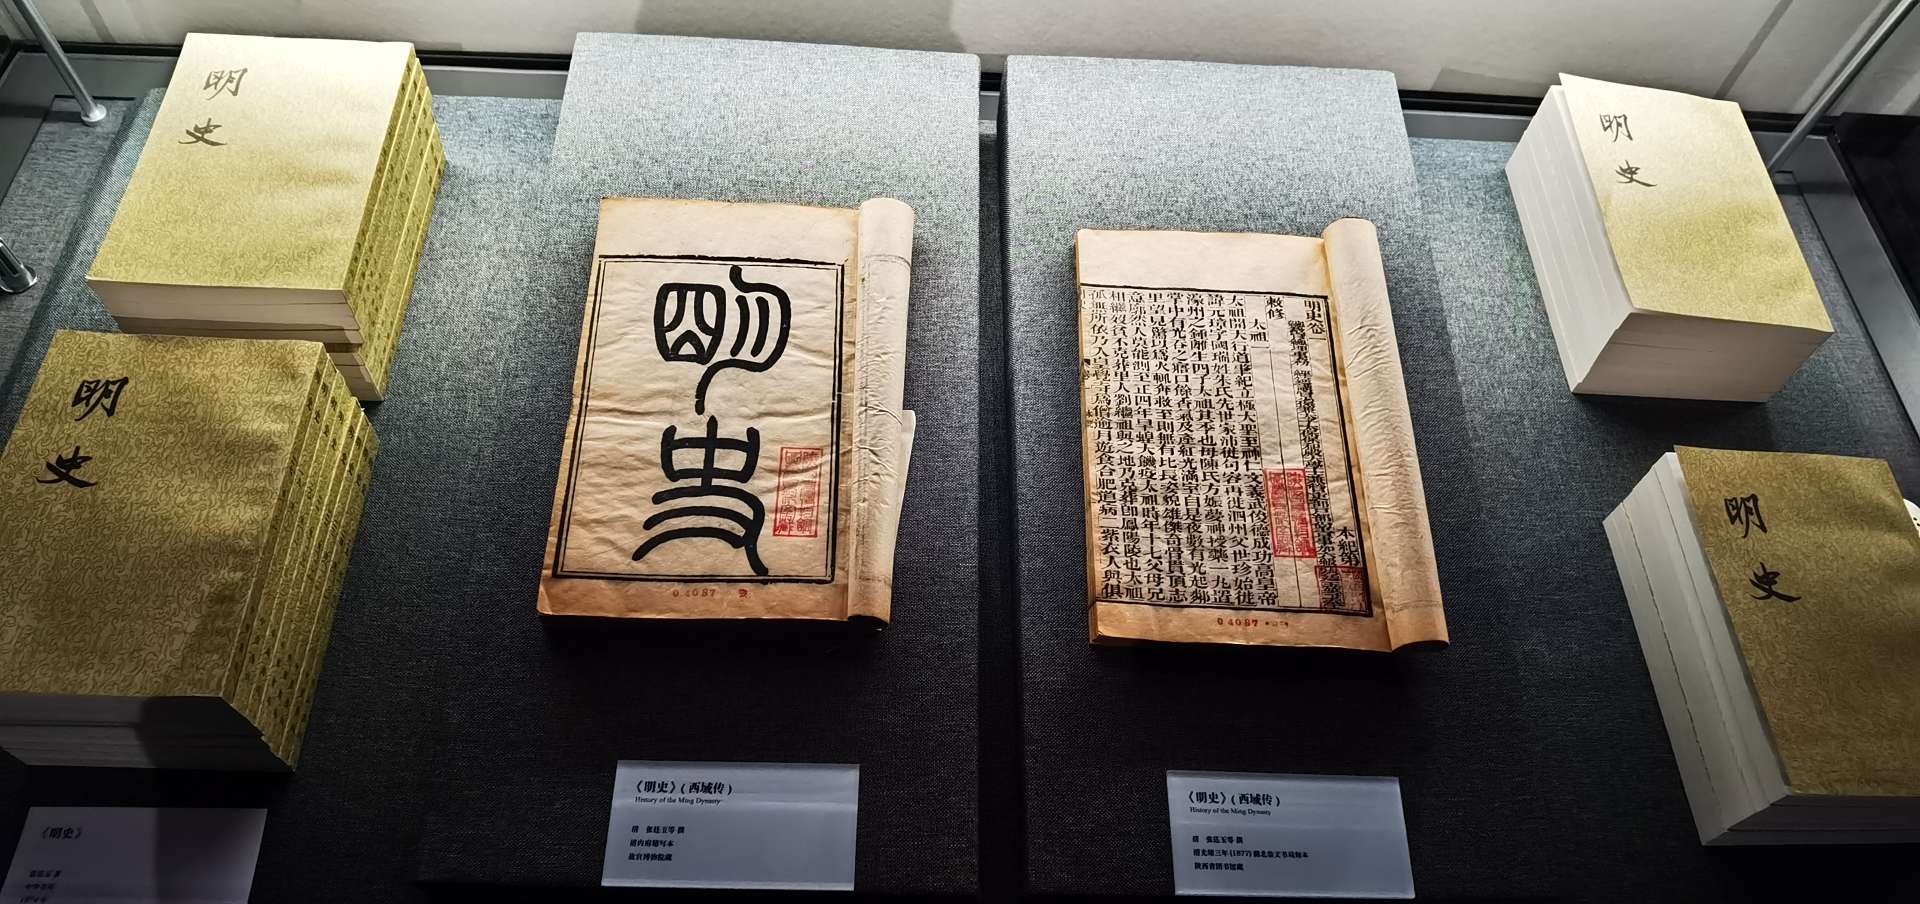 明
史
明
史
明
史
明
史
明史
04087
明史卷一
本紀第一
敕修
太祖一
太祖開天行道肇紀立極大聖至神仁文義武俊德成功高皇帝
諱元璋字國瑞姓朱氏先世家沛徙句容再徙泗州父世珍始徙
濠州之鍾離生四子太祖其季也母陳氏方娠夢神授藥一丸置
掌中有光吞之寤口餘香氣及產紅光滿室自是夜數有光起鄰
里望見驚以爲火輒奔救至則無有比長姿貌雄傑奇骨貫頂志
意廓然人莫能測至正四年旱蝗大饑疫太祖時年十七父母兄
相繼歿貧不克葬里人劉繼祖與之地乃克葬卽鳳陽陵也太祖
孤無所依乃入皇覺寺爲僧逾月遊食合肥道病二紫衣人與俱
04087
《明史》
《明史》(西域传)
History of the Ming Dynasty
清 张廷玉等 撰
清内府精写本
故宫博物院藏
《明史》(西域传)
History of the Ming Dynasty
清 张廷玉等 撰
清光绪三年(1877)湖北崇文书局刻本
陕西省图书馆藏